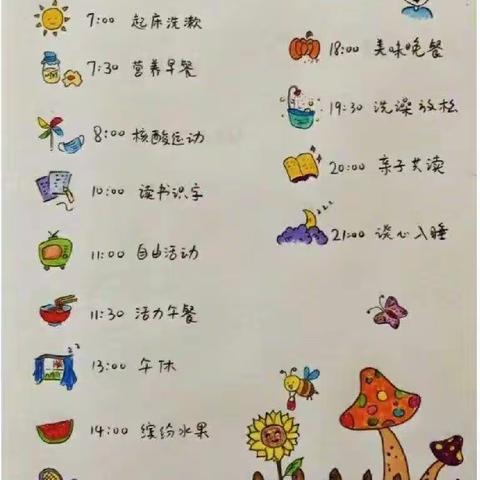 7:00 起床洗漱
7:30 营养早餐
8:00 核酸运动
10:00 读书识字
11:00 自由活动
11:30 活力午餐
13:00 午休
14:00 缤纷水果
18:00 美味晚餐
19:30 洗澡放松
20:00 亲子共读
21:00 谈心入睡